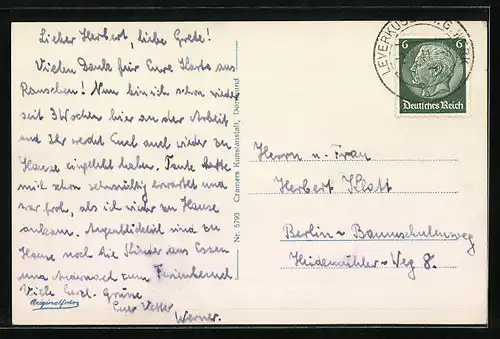 Lieber Herbert, liebe Grete!
Vielen Dank für Eure Karte aus
Rauschen! Nun bin ich schon wieder
seit 3 Wochen hier an der Arbeit
und Ihr werdet Euch auch wieder zu
Hause eingelebt haben. Tante hatte
mich schon sehnsüchtig erwartet und
war froh, als ich wieder zu Hause
ankam. Augenblicklich sind zu
Hause noch die Kinder aus Essen
zum
Viele herzl. Grüsse
Euer Vetter
Werner.
Originalfoto
Nr. 5793 Cramers Kunstanstalt, Dortmund
LEVERKUSEN
6 6
Deutsches Reich
Herrn u. Frau
Herbert Klatt
Berlin-Baumschulenweg
Heidemühler-Weg 8.